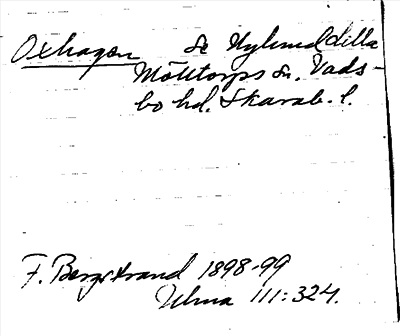 Oxhagen Se Nylund Lilla
Mölltorps sn. Vads-
bo hd. Skarab. l.
F. Bergstrand 1898-99
Ulma 111:324.